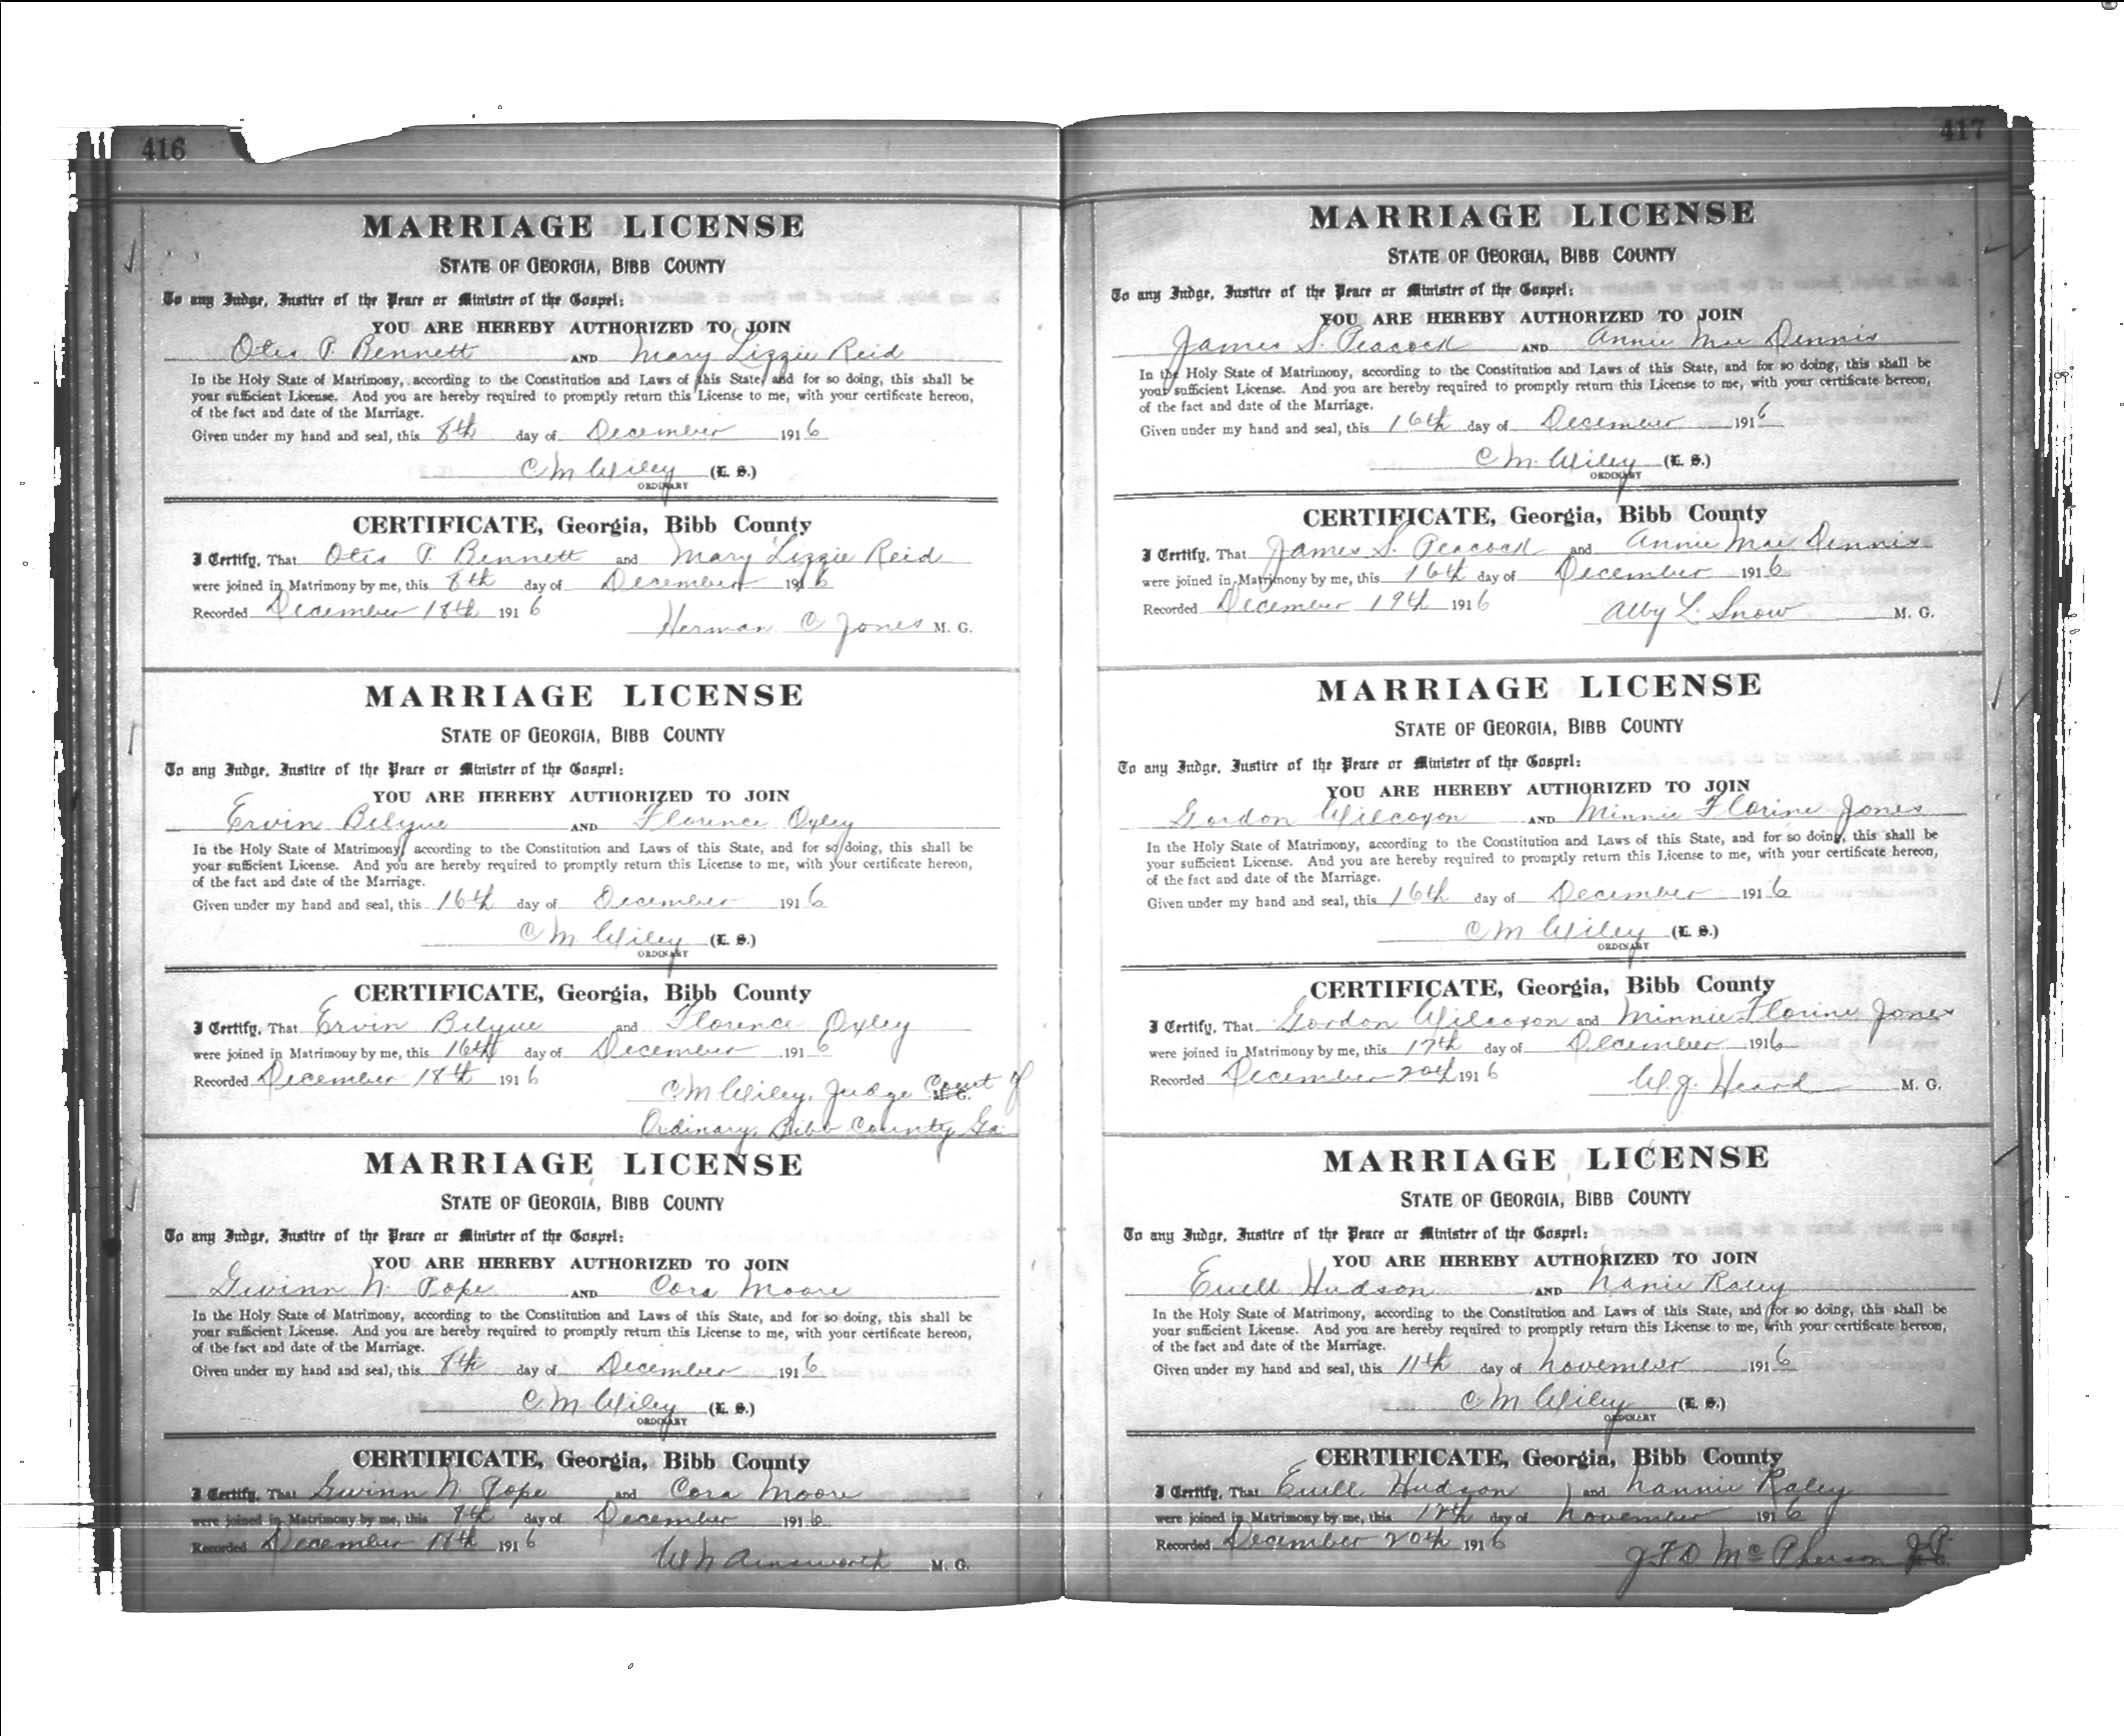 416
MARRIAGE LICENSE
STATE OF GEORGIA, BIBB COUNTY
To any Judge, Justice of the Peace or Minister of the Gospel:
YOU ARE HEREBY AUTHORIZED TO JOIN
Otis P. Bennett AND Mary Lizzie Reid
In the Holy State of Matrimony, according to the Constitution and Laws of this State, and for so doing, this shall be
your sufficient License. And you are hereby required to promptly return this License to me, with your certificate hereon,
of the fact and date of the Marriage.
Given under my hand and seal, this 8th day of December 1916
C M Wiley (L. S.)
ORDINARY
CERTIFICATE, Georgia, Bibb County
I Certify, That Otis P. Bennett and Mary Lizzie Reid
were joined in Matrimony by me, this 8th day of December 1916
Recorded December 18th 1916
Herman C Jones M. G.
MARRIAGE LICENSE
STATE OF GEORGIA, BIBB COUNTY
To any Judge, Justice of the Peace or Minister of the Gospel:
YOU ARE HEREBY AUTHORIZED TO JOIN
Ervin Belyue AND Florence Oxley
In the Holy State of Matrimony, according to the Constitution and Laws of this State, and for so doing, this shall be
your sufficient License. And you are hereby required to promptly return this License to me, with your certificate hereon,
of the fact and date of the Marriage.
Given under my hand and seal, this 16th day of December 1916
C M Wiley (L. S.)
ORDINARY
CERTIFICATE, Georgia, Bibb County
I Certify, That Ervin Belyue and Florence Oxley
were joined in Matrimony by me, this 16th day of December 1916
Recorded December 18th 1916
C M Wiley, Judge Court of
Ordinary, Bibb County Ga
MARRIAGE LICENSE
STATE OF GEORGIA, BIBB COUNTY
To any Judge, Justice of the Peace or Minister of the Gospel:
YOU ARE HEREBY AUTHORIZED TO JOIN
Gwinn N. Pope AND Cora Moore
In the Holy State of Matrimony, according to the Constitution and Laws of this State, and for so doing, this shall be
your sufficient License. And you are hereby required to promptly return this License to me, with your certificate hereon,
of the fact and date of the Marriage.
Given under my hand and seal, this 8th day of December 1916
C M Wiley (L. S.)
ORDINARY
CERTIFICATE, Georgia, Bibb County
I Certify, That Gwinn N. Pope and Cora Moore
were joined in Matrimony by me, this 8th day of December 1916
Recorded December 18th 1916
W N Ainsworth M. G.
417
MARRIAGE LICENSE
STATE OF GEORGIA, BIBB COUNTY
To any Judge, Justice of the Peace or Minister of the Gospel:
YOU ARE HEREBY AUTHORIZED TO JOIN
James S. Peacock AND Annie Mae Dennis
In the Holy State of Matrimony, according to the Constitution and Laws of this State, and for so doing, this shall be
your sufficient License. And you are hereby required to promptly return this License to me, with your certificate hereon,
of the fact and date of the Marriage.
Given under my hand and seal, this 16th day of December 1916
C M. Wiley (L. S.)
ORDINARY
CERTIFICATE, Georgia, Bibb County
I Certify, That James S. Peacock and Annie Mae Dennis
were joined in Matrimony by me, this 16th day of December 1916
Recorded December 19th 1916
Alby L. Snow M. G.
MARRIAGE LICENSE
STATE OF GEORGIA, BIBB COUNTY
To any Judge, Justice of the Peace or Minister of the Gospel:
YOU ARE HEREBY AUTHORIZED TO JOIN
Gordon Wilcoxon AND Minnie Florine Jones
In the Holy State of Matrimony, according to the Constitution and Laws of this State, and for so doing, this shall be
your sufficient License. And you are hereby required to promptly return this License to me, with your certificate hereon,
of the fact and date of the Marriage.
Given under my hand and seal, this 16th day of December 1916
C M Wiley (L. S.)
ORDINARY
CERTIFICATE, Georgia, Bibb County
I Certify, That Gordon Wilcoxon and Minnie Florine Jones
were joined in Matrimony by me, this 17th day of December 1916
Recorded December 20th 1916
W. J. Heard M. G.
MARRIAGE LICENSE
STATE OF GEORGIA, BIBB COUNTY
To any Judge, Justice of the Peace or Minister of the Gospel:
YOU ARE HEREBY AUTHORIZED TO JOIN
Euell Hudson AND Nanie Raley
In the Holy State of Matrimony, according to the Constitution and Laws of this State, and for so doing, this shall be
your sufficient License. And you are hereby required to promptly return this License to me, with your certificate hereon,
of the fact and date of the Marriage.
Given under my hand and seal, this 11th day of November 1916
C M Wiley (L. S.)
ORDINARY
CERTIFICATE, Georgia, Bibb County
I Certify, That Euell Hudson and Nannie Raley
were joined in Matrimony by me, this 12th day of November 1916
Recorded December 20th 1916
J T D McPherson J.P.